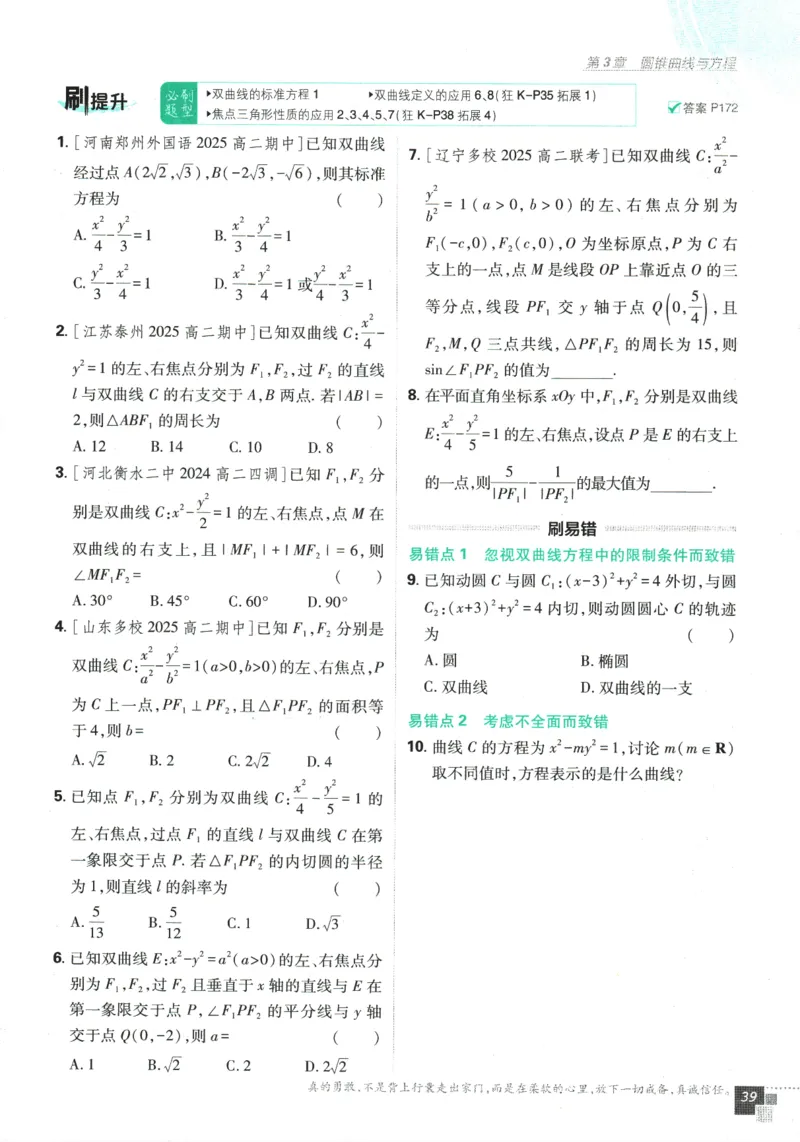 第3章 圆锥曲线与方程
刷提升
必刷题型
▶双曲线的标准方程 1 ▶双曲线定义的应用 6、8(狂 K-P35 拓展 1)
▶焦点三角形性质的应用 2、3、4、5、7(狂 K-P38 拓展 4)
答案 P172
1. [河南郑州外国语 2025 高二期中]已知双曲线
经过点 A(2√2,√3),B(-2√3,-√6),则其标准
方程为 ( )
A. x²/4-y²/3=1 B. x²/3-y²/4=1
C. y²/3-x²/4=1 D. x²/3-y²/4=1 或 y²/4-x²/3=1
2. [江苏泰州 2025 高二期中]已知双曲线 C: x²/4-
y²=1 的左、右焦点分别为 F₁,F₂,过 F₂ 的直线
l 与双曲线 C 的右支交于 A,B 两点. 若|AB|=
2,则△ABF₁ 的周长为 ( )
A. 12 B. 14 C. 10 D. 8
3. [河北衡水二中 2024 高二四调]已知 F₁,F₂ 分
别是双曲线 C:x²-y²/2=1 的左、右焦点,点 M 在
双曲线的右支上,且|MF₁|+|MF₂|=6,则
∠MF₁F₂= ( )
A. 30° B. 45° C. 60° D. 90°
4. [山东多校 2025 高二期中]已知 F₁,F₂ 分别是
双曲线 C: x²/a²-y²/b²=1(a>0,b>0)的左、右焦点,P
为 C 上一点,PF₁⊥PF₂,且△F₁PF₂ 的面积等
于 4,则 b= ( )
A. √2 B. 2 C. 2√2 D. 4
5. 已知点 F₁,F₂ 分别为双曲线 C: x²/4-y²/5=1 的
左、右焦点,过点 F₁ 的直线 l 与双曲线 C 在第
一象限交于点 P. 若△F₁PF₂ 的内切圆的半径
为 1,则直线 l 的斜率为 ( )
A. 5/13 B. 5/12 C. 1 D. √3
6. 已知双曲线 E:x²-y²=a²(a>0)的左、右焦点分
别为 F₁,F₂,过 F₂ 且垂直于 x 轴的直线与 E 在
第一象限交于点 P,∠F₁PF₂ 的平分线与 y 轴
交于点 Q(0,-2),则 a= ( )
A. 1 B. √2 C. 2 D. 2√2
7. [辽宁多校 2025 高二联考]已知双曲线 C: x²/a²-
y²/b²=1(a>0,b>0)的左、右焦点分别为
F₁(-c,0),F₂(c,0),O 为坐标原点,P 为 C 右
支上的一点,点 M 是线段 OP 上靠近点 O 的三
等分点,线段 PF₁ 交 y 轴于点 Q(0,5/4),且
F₂,M,Q 三点共线,△PF₁F₂ 的周长为 15,则
sin∠F₁PF₂ 的值为______.
8. 在平面直角坐标系 xOy 中,F₁,F₂ 分别是双曲线
E: x²/4-y²/5=1 的左、右焦点,设点 P 是 E 的右支上
的一点,则 5/|PF₁|-1/|PF₂| 的最大值为______.
刷易错
易错点 1 忽视双曲线方程中的限制条件而致错
9. 已知动圆 C 与圆 C₁:(x-3)²+y²=4 外切,与圆
C₂:(x+3)²+y²=4 内切,则动圆圆心 C 的轨迹
为 ( )
A. 圆 B. 椭圆
C. 双曲线 D. 双曲线的一支
易错点 2 考虑不全面而致错
10. 曲线 C 的方程为 x²-my²=1,讨论 m(m∈R)
取不同值时,方程表示的是什么曲线?
真的勇敢,不是背上行囊走出家门,而是在柔软的心里,放下一切戒备,真诚信任。
39